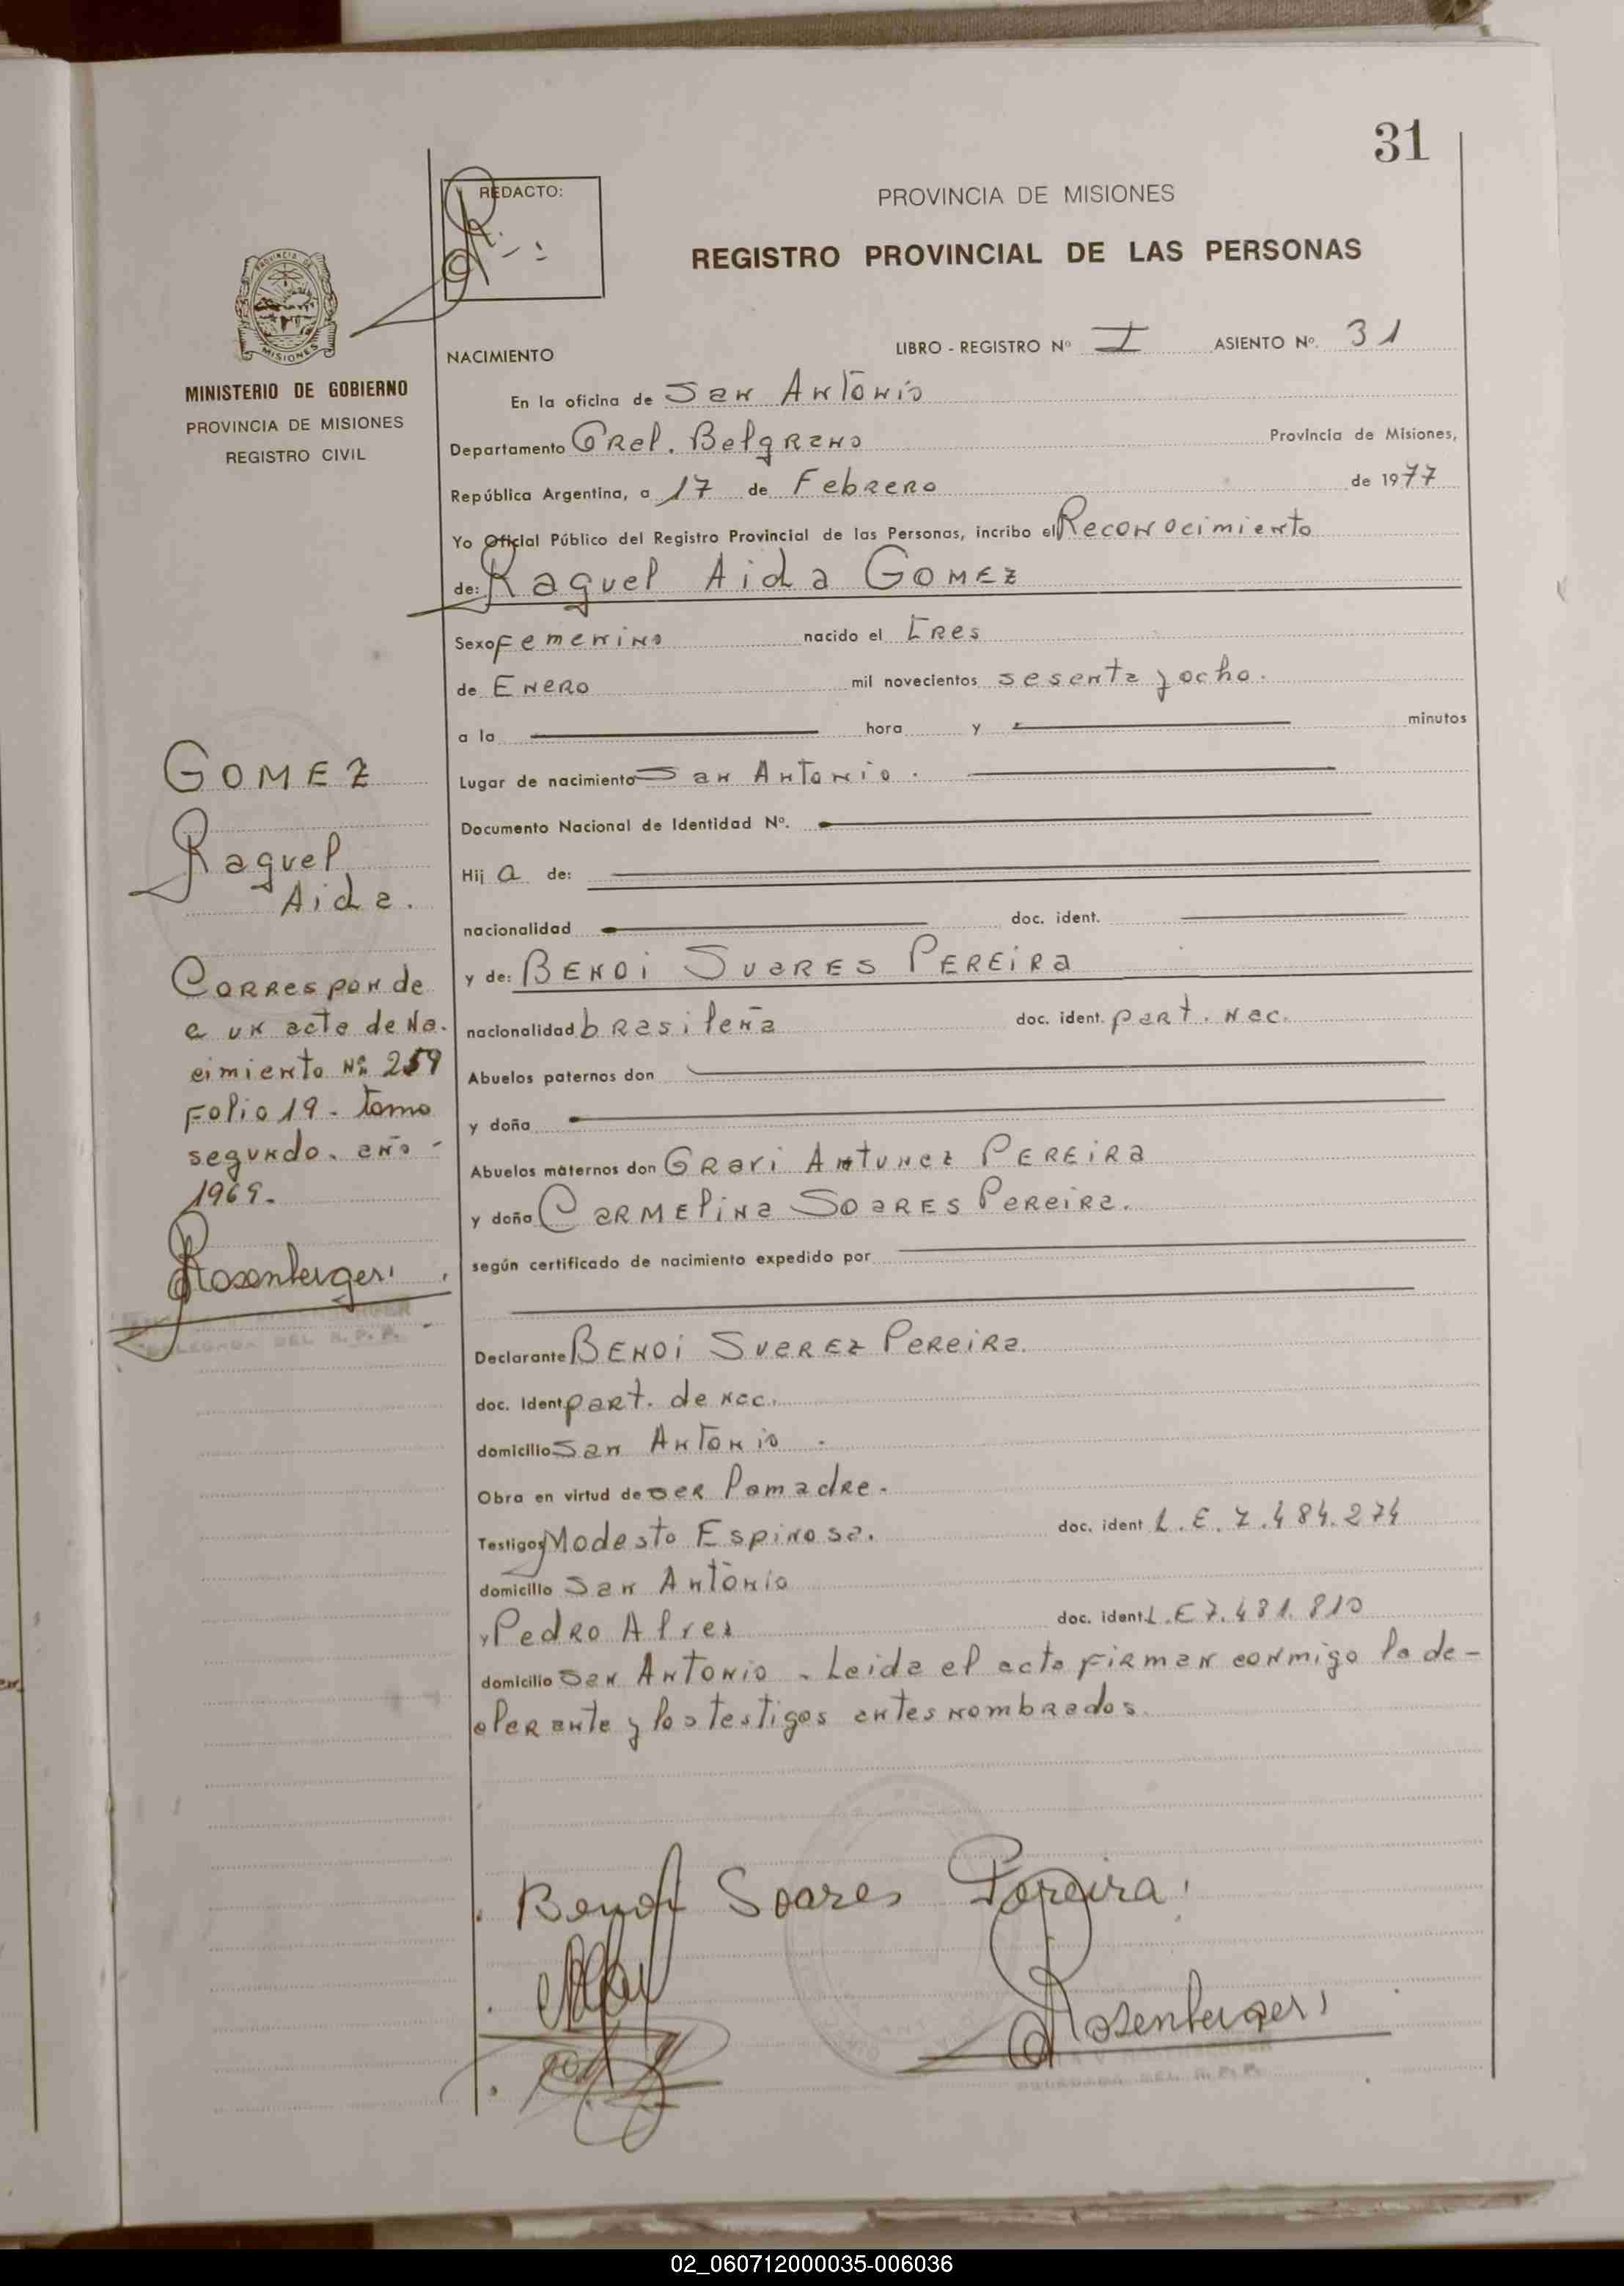 31
REDACTO:
PROVINCIA DE MISIONES
REGISTRO PROVINCIAL DE LAS PERSONAS
PROVINCIA DE
MISIONES
MINISTERIO DE GOBIERNO
PROVINCIA DE MISIONES
REGISTRO CIVIL
NACIMIENTO
LIBRO - REGISTRO Nº I ASIENTO Nº. 31
En la oficina de San Antonio
Departamento Gral. Belgrano Provincia de Misiones,
República Argentina, a 17 de Febrero de 1977
Yo Oficial Público del Registro Provincial de las Personas, incribo el Reconocimiento
de: Raquel Aida GOMEZ
Sexo Femenino nacido el tres
de Enero mil novecientos sesenta y ocho.
a la hora y minutos
Lugar de nacimiento San Antonio.
Documento Nacional de Identidad Nº.
Hij a de:
nacionalidad doc. ident.
y de: BENDI SUARES PEREIRA
nacionalidad brasileña doc. ident. part. nac.
Abuelos paternos don
y doña
Abuelos maternos don Antunez PEREIRA
y doña CARMELINA SOARES Pereira.
según certificado de nacimiento expedido por
Declarante BENDI SUAREZ Pereira.
doc. ident. part. de nac.
domicilio San Antonio.
Obra en virtud de ser la madre.
Testigos Modesto Espinosa. doc. ident L.E. 7.484.274
domicilio San Antonio
y Pedro Alves doc. ident. L.E 7.481.810
domicilio San Antonio. Leida el acta firman conmigo la de-
clarante y los testigos antes nombrados.
GOMEZ
Raquel
Aida.
Corresponde
a un acta de Na-
cimiento Nº 259
Folio 19 - tomo
segundo. año -
1969.
Rosenberger
DELEGADA DEL R.P.P.
Bendi Soares Pereira
Rosenberger
DELEGADA DEL R.P.P.
02_060712000035-006036